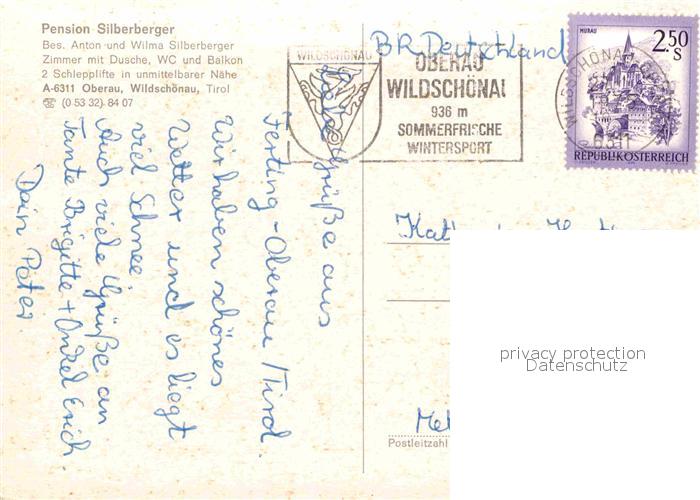 Pension Silberberger
Bes. Anton und Wilma Silberberger
Zimmer mit Dusche, WC und Balkon
2 Schlepplifte in unmittelbarer Nähe
A-6311 Oberau, Wildschönau, Tirol
☏ (0 53 32) 84 07
Grüße aus
Oberau / Tirol.
Wir haben schönes
Wetter und es liegt
viel Schnee.
Auch viele Grüße an
Tante Brigitte + Onkel Erich.
Dein Peter.
WILDSCHÖNAU
OBERAU
WILDSCHÖNAU
936 m
SOMMERFRISCHE
WINTERSPORT
BR Deutschland
MURAU
2.50
S
REPUBLIK ÖSTERREICH
6311
privacy protection
Datenschutz
Postleitzahl